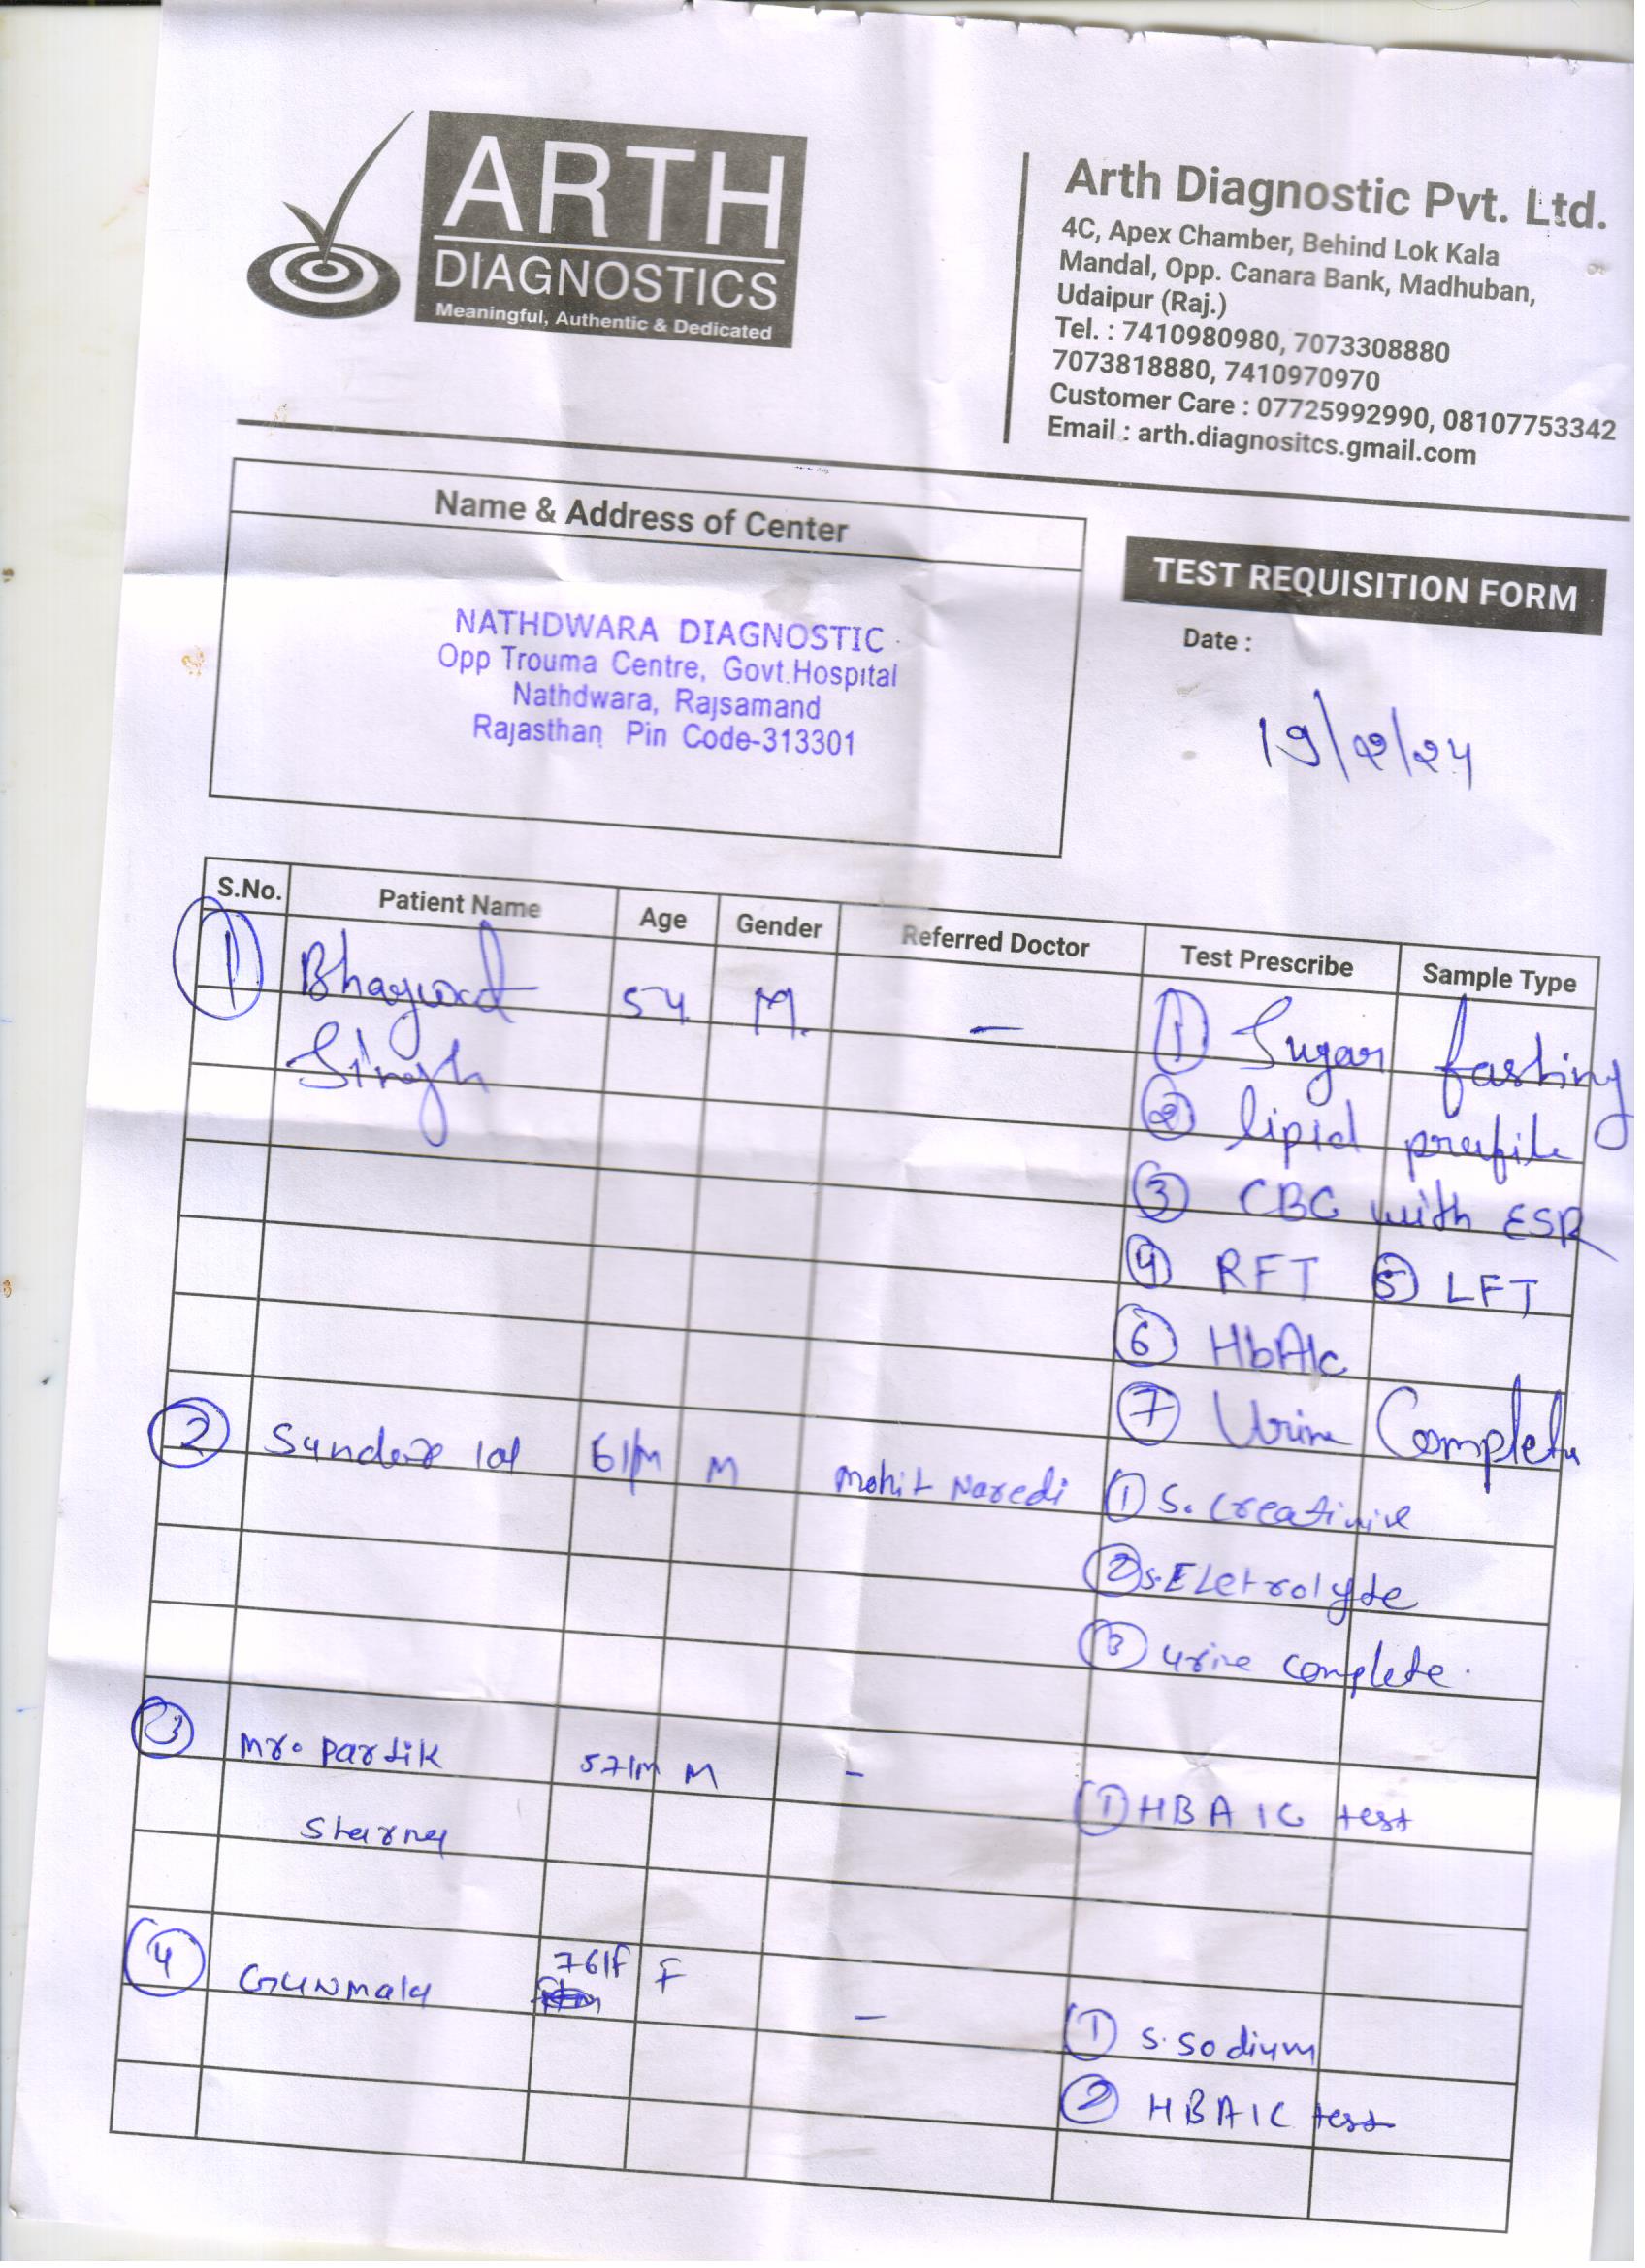 ARTH
DIAGNOSTICS
Meaningful, Authentic & Dedicated
Arth Diagnostic Pvt. Ltd.
4C, Apex Chamber, Behind Lok Kala
Mandal, Opp. Canara Bank, Madhuban,
Udaipur (Raj.)
Tel. : 7410980980, 7073308880
7073818880, 7410970970
Customer Care : 07725992990, 08107753342
Email : arth.diagnositcs.gmail.com
Name & Address of Center
NATHDWARA DIAGNOSTIC
Opp Trouma Centre, Govt.Hospital
Nathdwara, Rajsamand
Rajasthan Pin Code-313301
TEST REQUISITION FORM
Date :
19/2/24
S.No. Patient Name Age Gender Referred Doctor Test Prescribe Sample Type
1 Bhagwat 54 M. - 1 Sugar fasting
Singh
2 lipid
3 CBC with ESR
4 RFT 5 LFT
6 HbA1c
7 Urine
2 Sunder lal 61/M M Mohit Naredi 1 S. Creatinine
2 S.Eletrolyte
3 urine complete.
3 Mr. Partik 57/M M - 1 HBA1C test
4 Gunmala 76/F F - 1 S.Sodium
2 HBA1C test